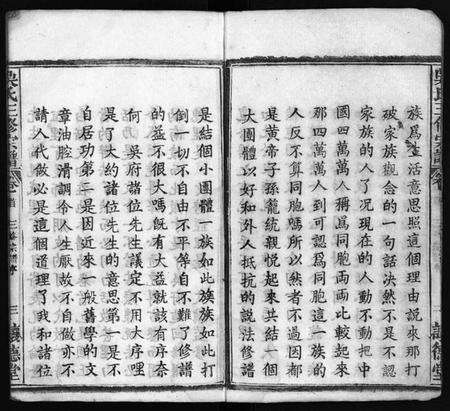 族為生活意思照這個理由說來那打
破家族觀念的一句話決然不是不認
家族的人了况現在的人動不動把中
國四萬萬人稱爲同胞兩兩此較起來
那四萬萬人到可認爲同胞這一族的
人反不算同胞嗎所以然者不過因都
是黄帝子孫籠統親悅起來共結一個
大團體以好和外人抵抗的說法修譜
是結個小團體一族如此族族如此打
倒一切不自由不平等自不難了修譜
的益不很大嗎旣有大益就該有序奈
何吳府諸位先生議定不用大序哩
是了大約諸位先生的意思第一是不
自居功第二是因近來一般舊學的文
章油腔滑調令人生厭故不自做亦不
請人代做必是這個道理了我和諸位
吳氏三修宗譜
卷首
三
讓德堂